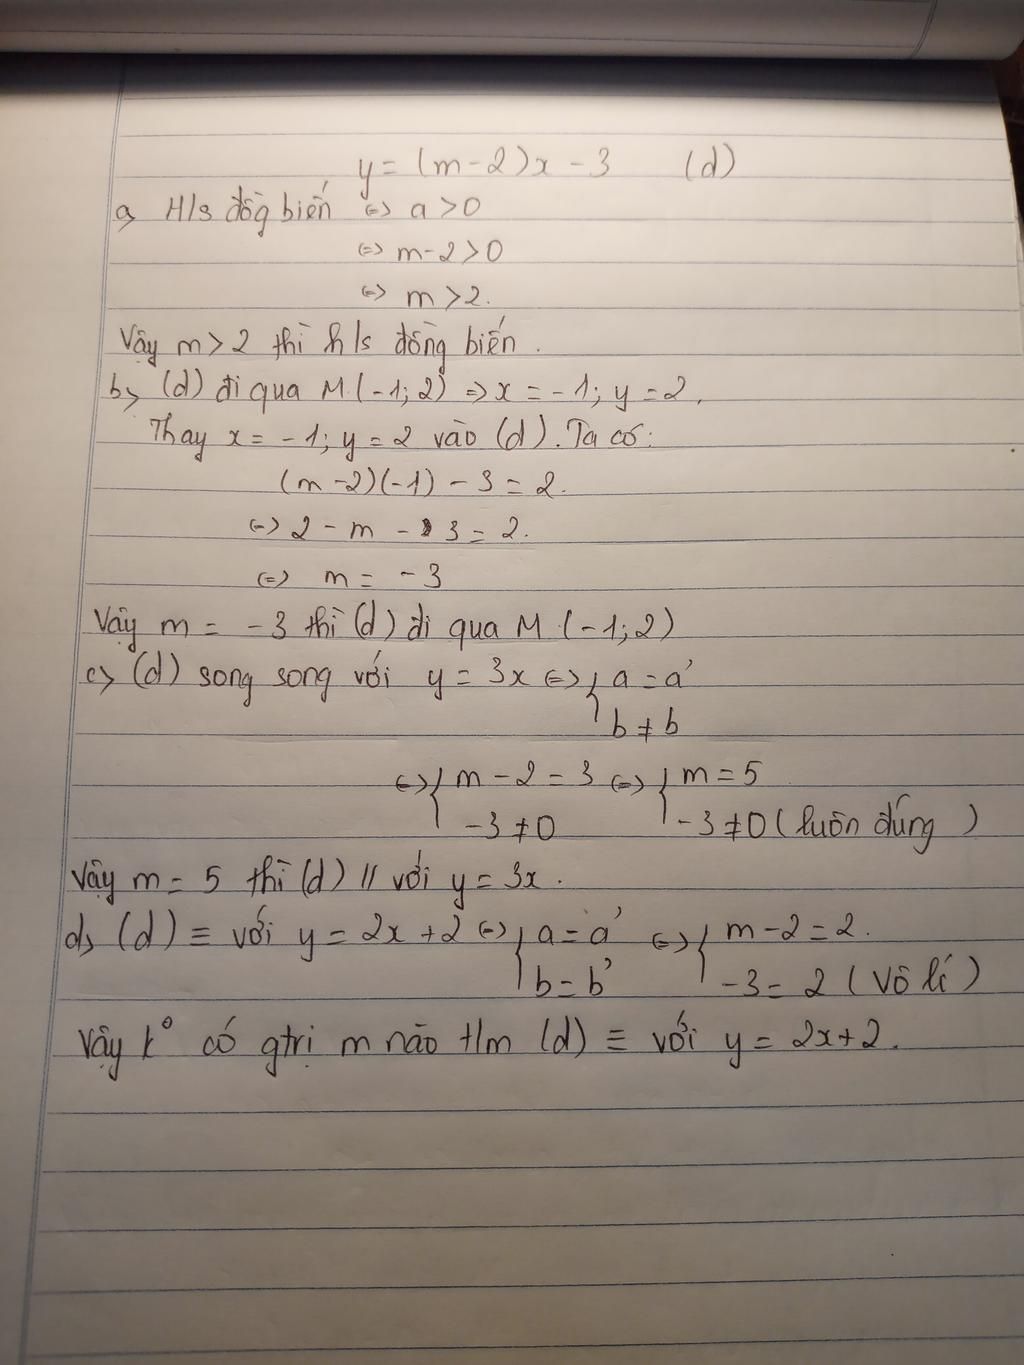 y = (m-2)x - 3 (d)
a, H/s đồg biến <=> a > 0
<=> m-2 > 0
<=> m > 2.
Vậy m > 2 thì h/s đồng biến.
b, (d) đi qua M (-1; 2) => x = -1; y = 2.
Thay x = -1; y = 2 vào (d). Ta có:
(m-2)(-1) - 3 = 2.
<=> 2 - m - 3 = 2.
<=> m = -3
Vậy m = -3 thì (d) đi qua M (-1; 2)
c, (d) song song với y = 3x <=> { a = a'
b ≠ b
<=> { m - 2 = 3 <=> { m = 5
-3 ≠ 0 -3 ≠ 0 (luôn đúng)
Vậy m = 5 thì (d) // với y = 3x.
d, (d) ≡ với y = 2x + 2 <=> { a = a' <=> { m - 2 = 2.
b = b' -3 = 2 (Vô lí)
Vậy k° có gtrị m nào t/m (d) ≡ với y = 2x + 2.